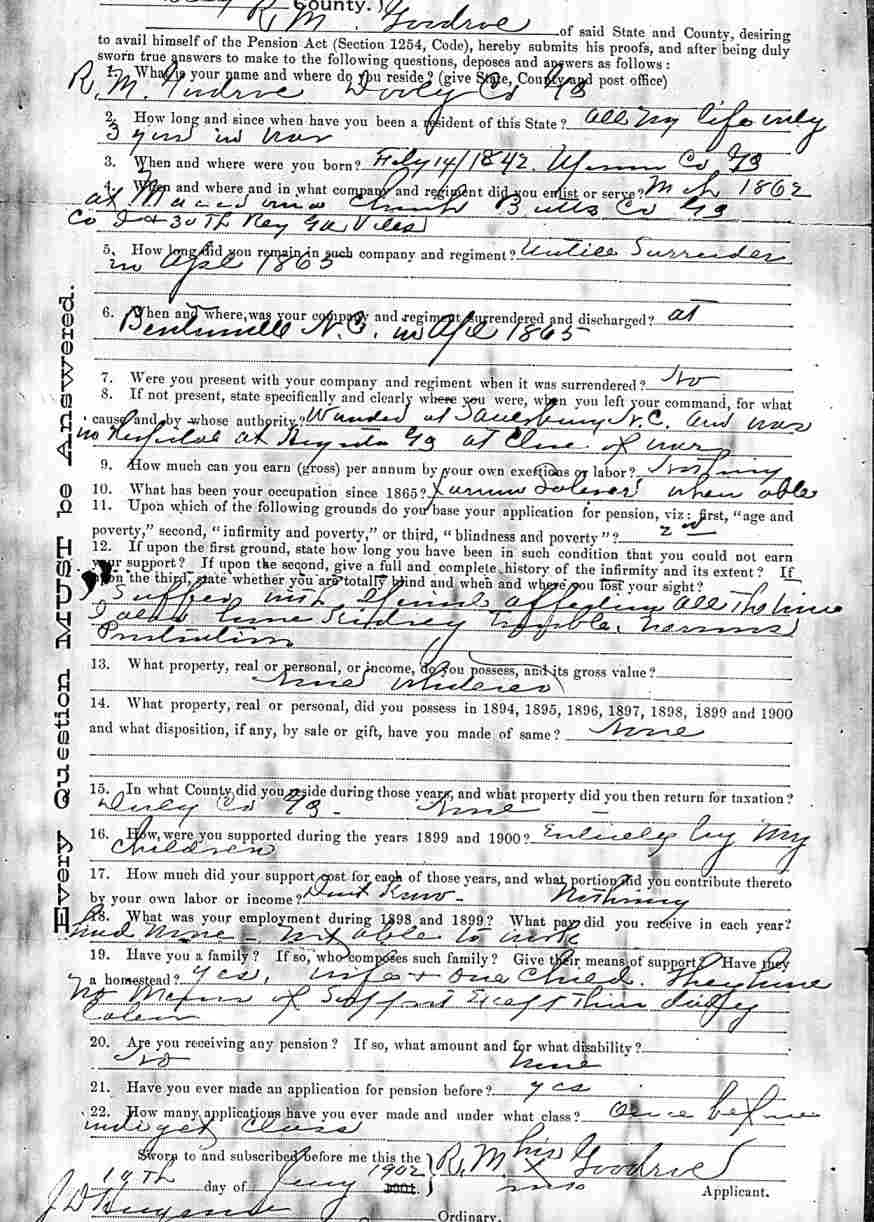 County.
R. M. Goodroe of said State and County, desiring
to avail himself of the Pension Act (Section 1254, Code), hereby submits his proofs, and after being duly
sworn true answers to make to the following questions, deposes and answers as follows:
1. What is your name and where do you reside? (give State, County and post office)
R. M. Goodroe Dooly Co Ga
2. How long and since when have you been a resident of this State? all my life only
3 years in war
3. When and where were you born? Feby 14/1842. Co Ga
4. When and where and in what company and regiment did you enlist or serve? Mch 1862
at Church Butts Co Ga
Co I 30th Reg Ga Vols
5. How long did you remain in such company and regiment? Untill Surrender
in Apl 1865
6. When and where was your company and regiment surrendered and discharged? at
N.C. in Apl 1865
7. Were you present with your company and regiment when it was surrendered? No
8. If not present, state specifically and clearly where you were, when you left your command, for what
cause and by whose authority? at N.C. and was
in at Ga at Close of war
9. How much can you earn (gross) per annum by your own exertions or labor? Nothing
10. What has been your occupation since 1865? when able
11. Upon which of the following grounds do you base your application for pension, viz: first, "age and
poverty," second, "infirmity and poverty," or third, "blindness and poverty"? 2nd
12. If upon the first ground, state how long you have been in such condition that you could not earn
your support? If upon the second, give a full and complete history of the infirmity and its extent? If
upon the third, state whether you are totally blind and when and where you lost your sight?
Suffer with all the time
I also have Kidney Trouble. Nervous
Prostration
13. What property, real or personal, or income, do you possess, and its gross value?
None whatever
14. What property, real or personal, did you possess in 1894, 1895, 1896, 1897, 1898, 1899 and 1900
and what disposition, if any, by sale or gift, have you made of same? None
15. In what County did you reside during those years, and what property did you then return for taxation?
Dooly Co Ga - None -
16. How were you supported during the years 1899 and 1900? Entirely by My
Children
17. How much did your support cost for each of those years, and what portion did you contribute thereto
by your own labor or income? Dont Know - Nothing
18. What was your employment during 1898 and 1899? What pay did you receive in each year?
had None - Not able to work
19. Have you a family? If so, who composes such family? Give their means of support? Have they
a homestead? yes, wife + one Child. They have
No Means of Support Except Their daily
Labor
20. Are you receiving any pension? If so, what amount and for what disability?
No None
21. Have you ever made an application for pension before? yes
22. How many applications have you ever made and under what class? once before
Class
Sworn to and subscribed before me this the
R. M. his X Goodroe
day of 1902 Applicant.
Ordinary.
Every Question MUST be Answered.